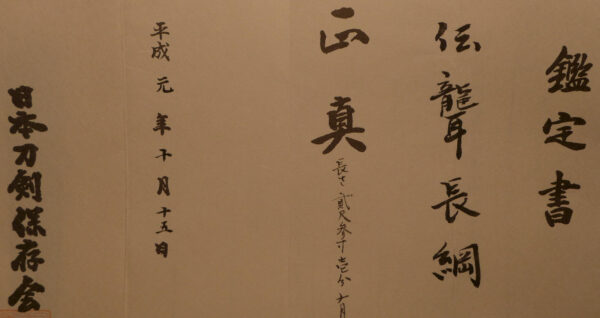 鑑定書
伝聾長綱
正真
長さ貳尺参寸壱分
平成元年十月十五日
日本刀剣保存会